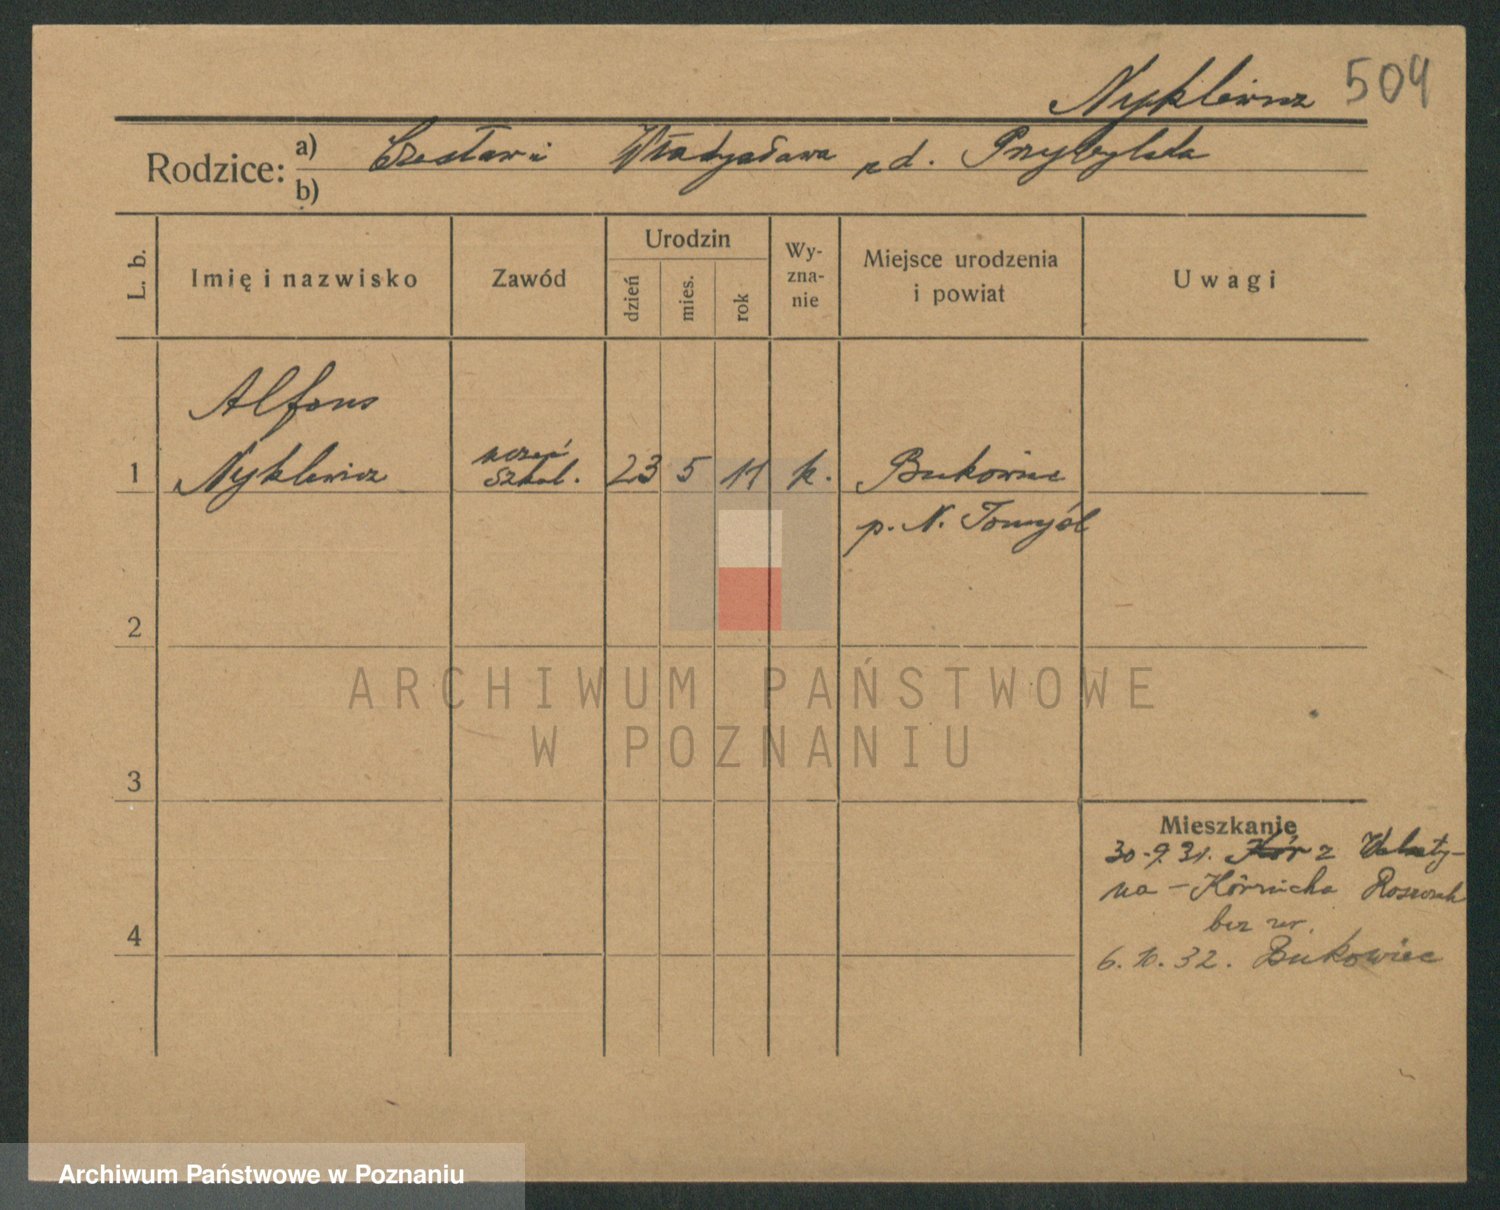 Nyklewicz 504
Rodzice: a) Czesław i Władysława zd. Przybylska
b)
L. b. Imię i nazwisko Zawód Urodzin dzień mies. rok Wyznanie Miejsce urodzenia i powiat Uwagi
Alfons
1 Nyklewicz uczeń szkol. 23 5 11 k. Bukowiec
p. N. Tomyśl
2
ARCHIWUM PAŃSTWOWE
W POZNANIU
3
Mieszkanie
30.9.31. z
na - Kórnicka
bez zw.
4
6.10.32. Bukowiec
Archiwum Państwowe w Poznaniu